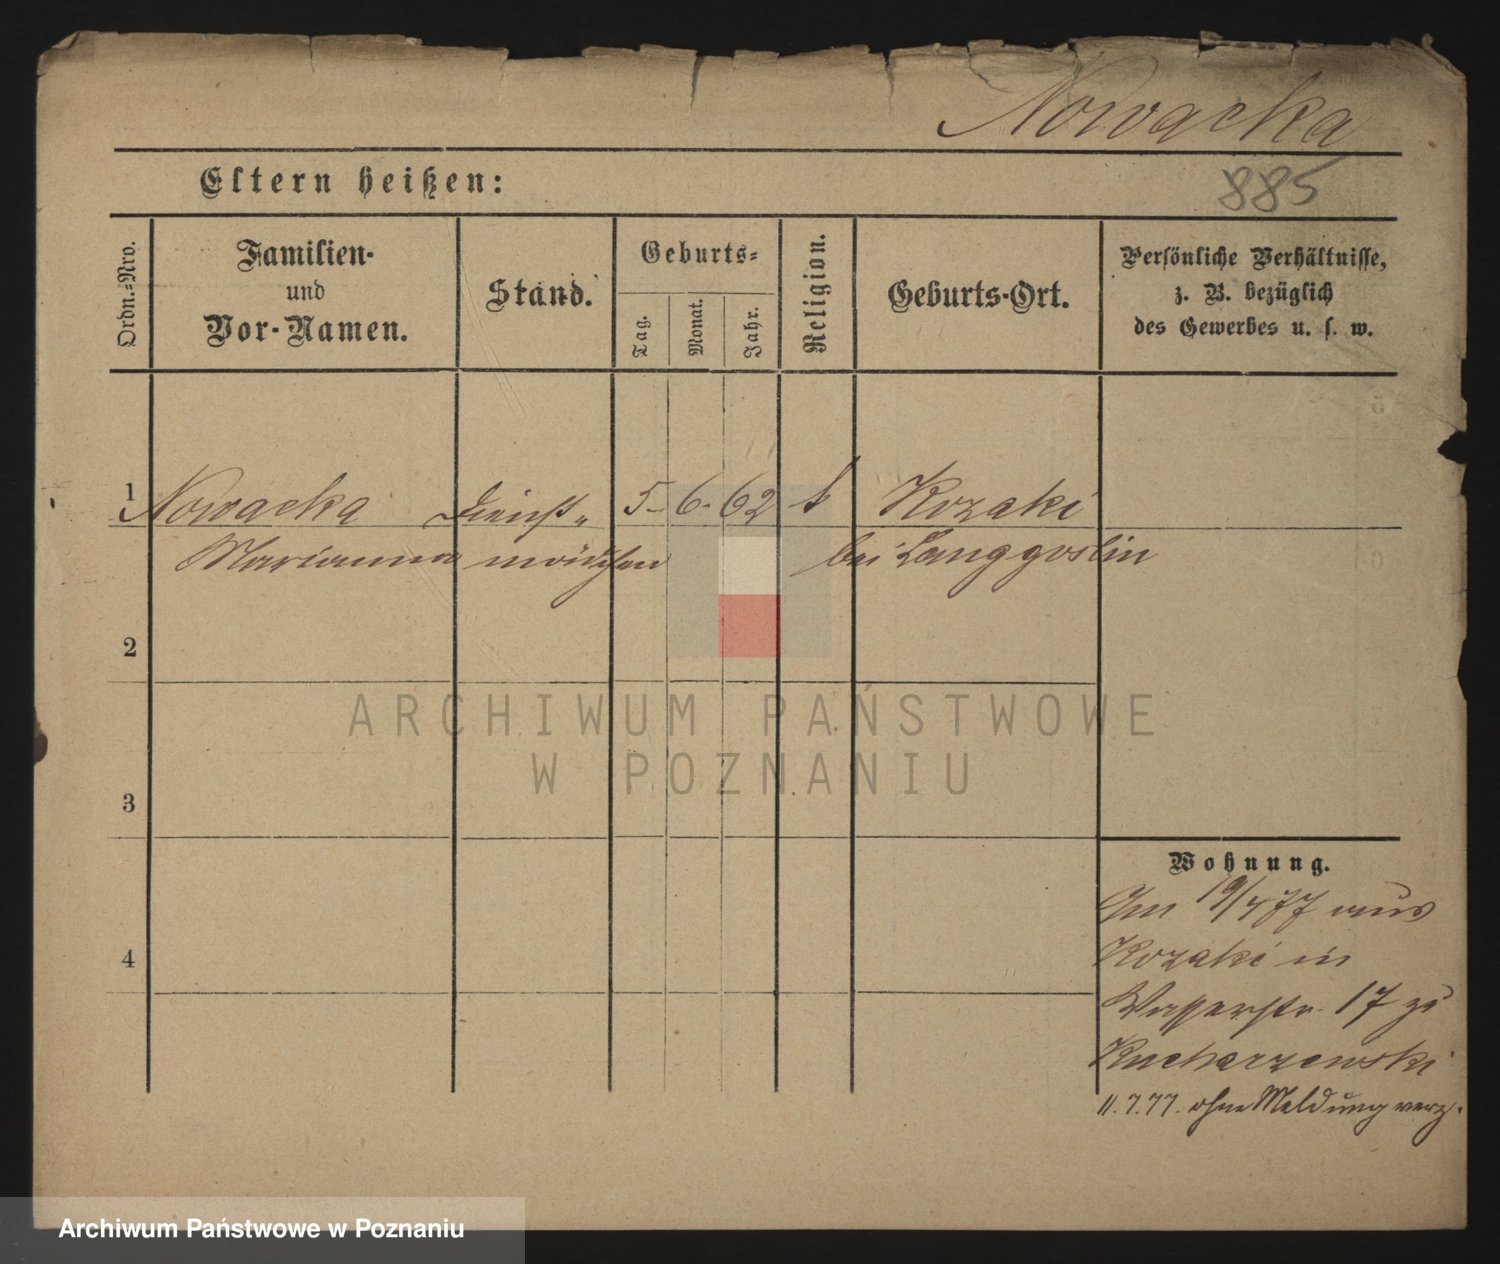 Nowacka
Eltern heißen:
885
Ordn.-Nro.
Familien-
und
Vor-Namen.
Stand.
Geburts-
Tag.
Monat.
Jahr.
Religion.
Geburts-Ort.
Persönliche Verhältnisse,
z. B. bezüglich
des Gewerbes u. s. w.
1 Nowacka Dienst„ 5- 6. 62 k Kozaki
Marianna mädchen bei Langgoslin
2
ARCHIWUM PAŃSTWOWE
W POZNANIU
3
Wohnung.
Am 19/4 77 aus
4
Kozaki in
Wasserstr. 17 zu
Kucharzewski
11.7.77. ohne Meldung verz.
Archiwum Państwowe w Poznaniu